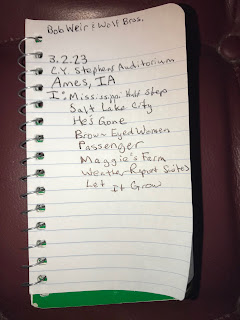 Bob Weir & Wolf Bros.
3.2.23
C.Y. Stephens Auditorium
Ames, IA
I: Mississippi Half Step
Salt Lake City
He's Gone
Brown Eyed Women
Passenger
Maggie's Farm
Weather Report Suite>
Let It Grow